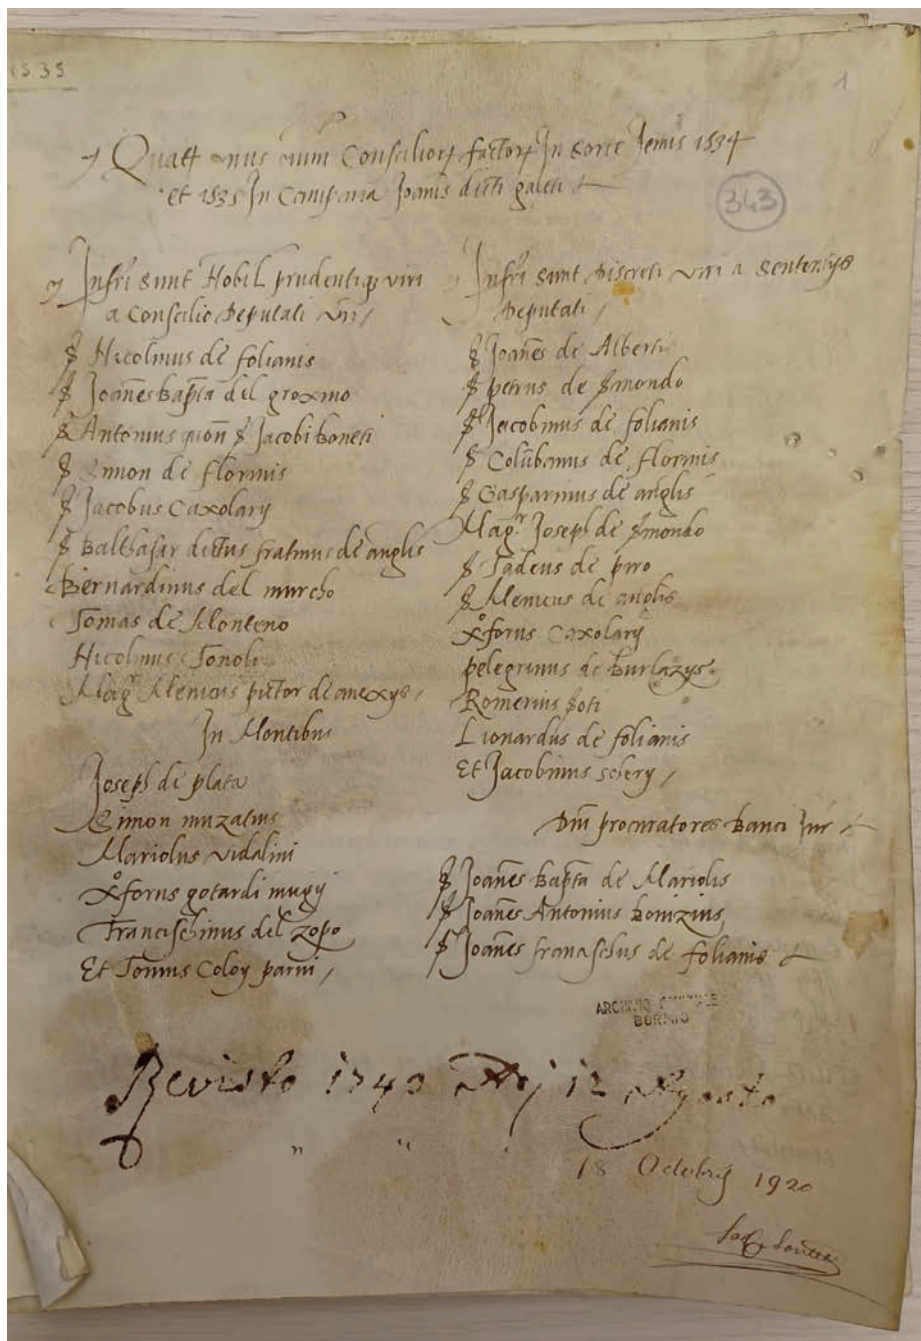 1535
1
Quatt onus omnium Consiliorum factorum In sorte Iemis 1534
et 1535 In Caniparia Joanis dicti galeti
343
Infri sunt Nobil prudentiq viri
a Consilio Deputati
S Nicolinus de folianis
S Joanes bapta del groxino
S Antonius quon S Jacobi boneti
S Simon de florinis
S Jacobus Caxolary
S Balthasar dictus fratinus de anglis
Bernardinus del murcho
Tomas de Monteno
Nicolinus Tonoli
Magr Menicus pictor de anexys
In Montibus
Joseph de plata
Simon muzatus
Mariolus vidalini
Xoforus gotardi mugij
Francischinus del zopo
Et Tonius Coloy parvi
Infri sunt Discreti viri a sententys
Deputati
S Joanes de Alberti
S petrus de Smondo
S Jacobinus de folianis
S Colubanus de florinis
S Gasparinus de anglis
Magr Joseph de Smondo
S Tadeus de piro
S Menicus de anglis
Xoforus Caxolary
pelegrinus de Burlazys
Romerius Soti
Lionardus de folianis
Et Jacobinus schery
Dni procuratores banci Jur
S Joanes bapta de Mariolis
S Joanes Antonius bonizius
S Joanes francischus de folianis
ARCHIVIO CIVILE
BORMIO
Revisto 1743 Adj 12 Agosto
" " "
18 Octobris 1920